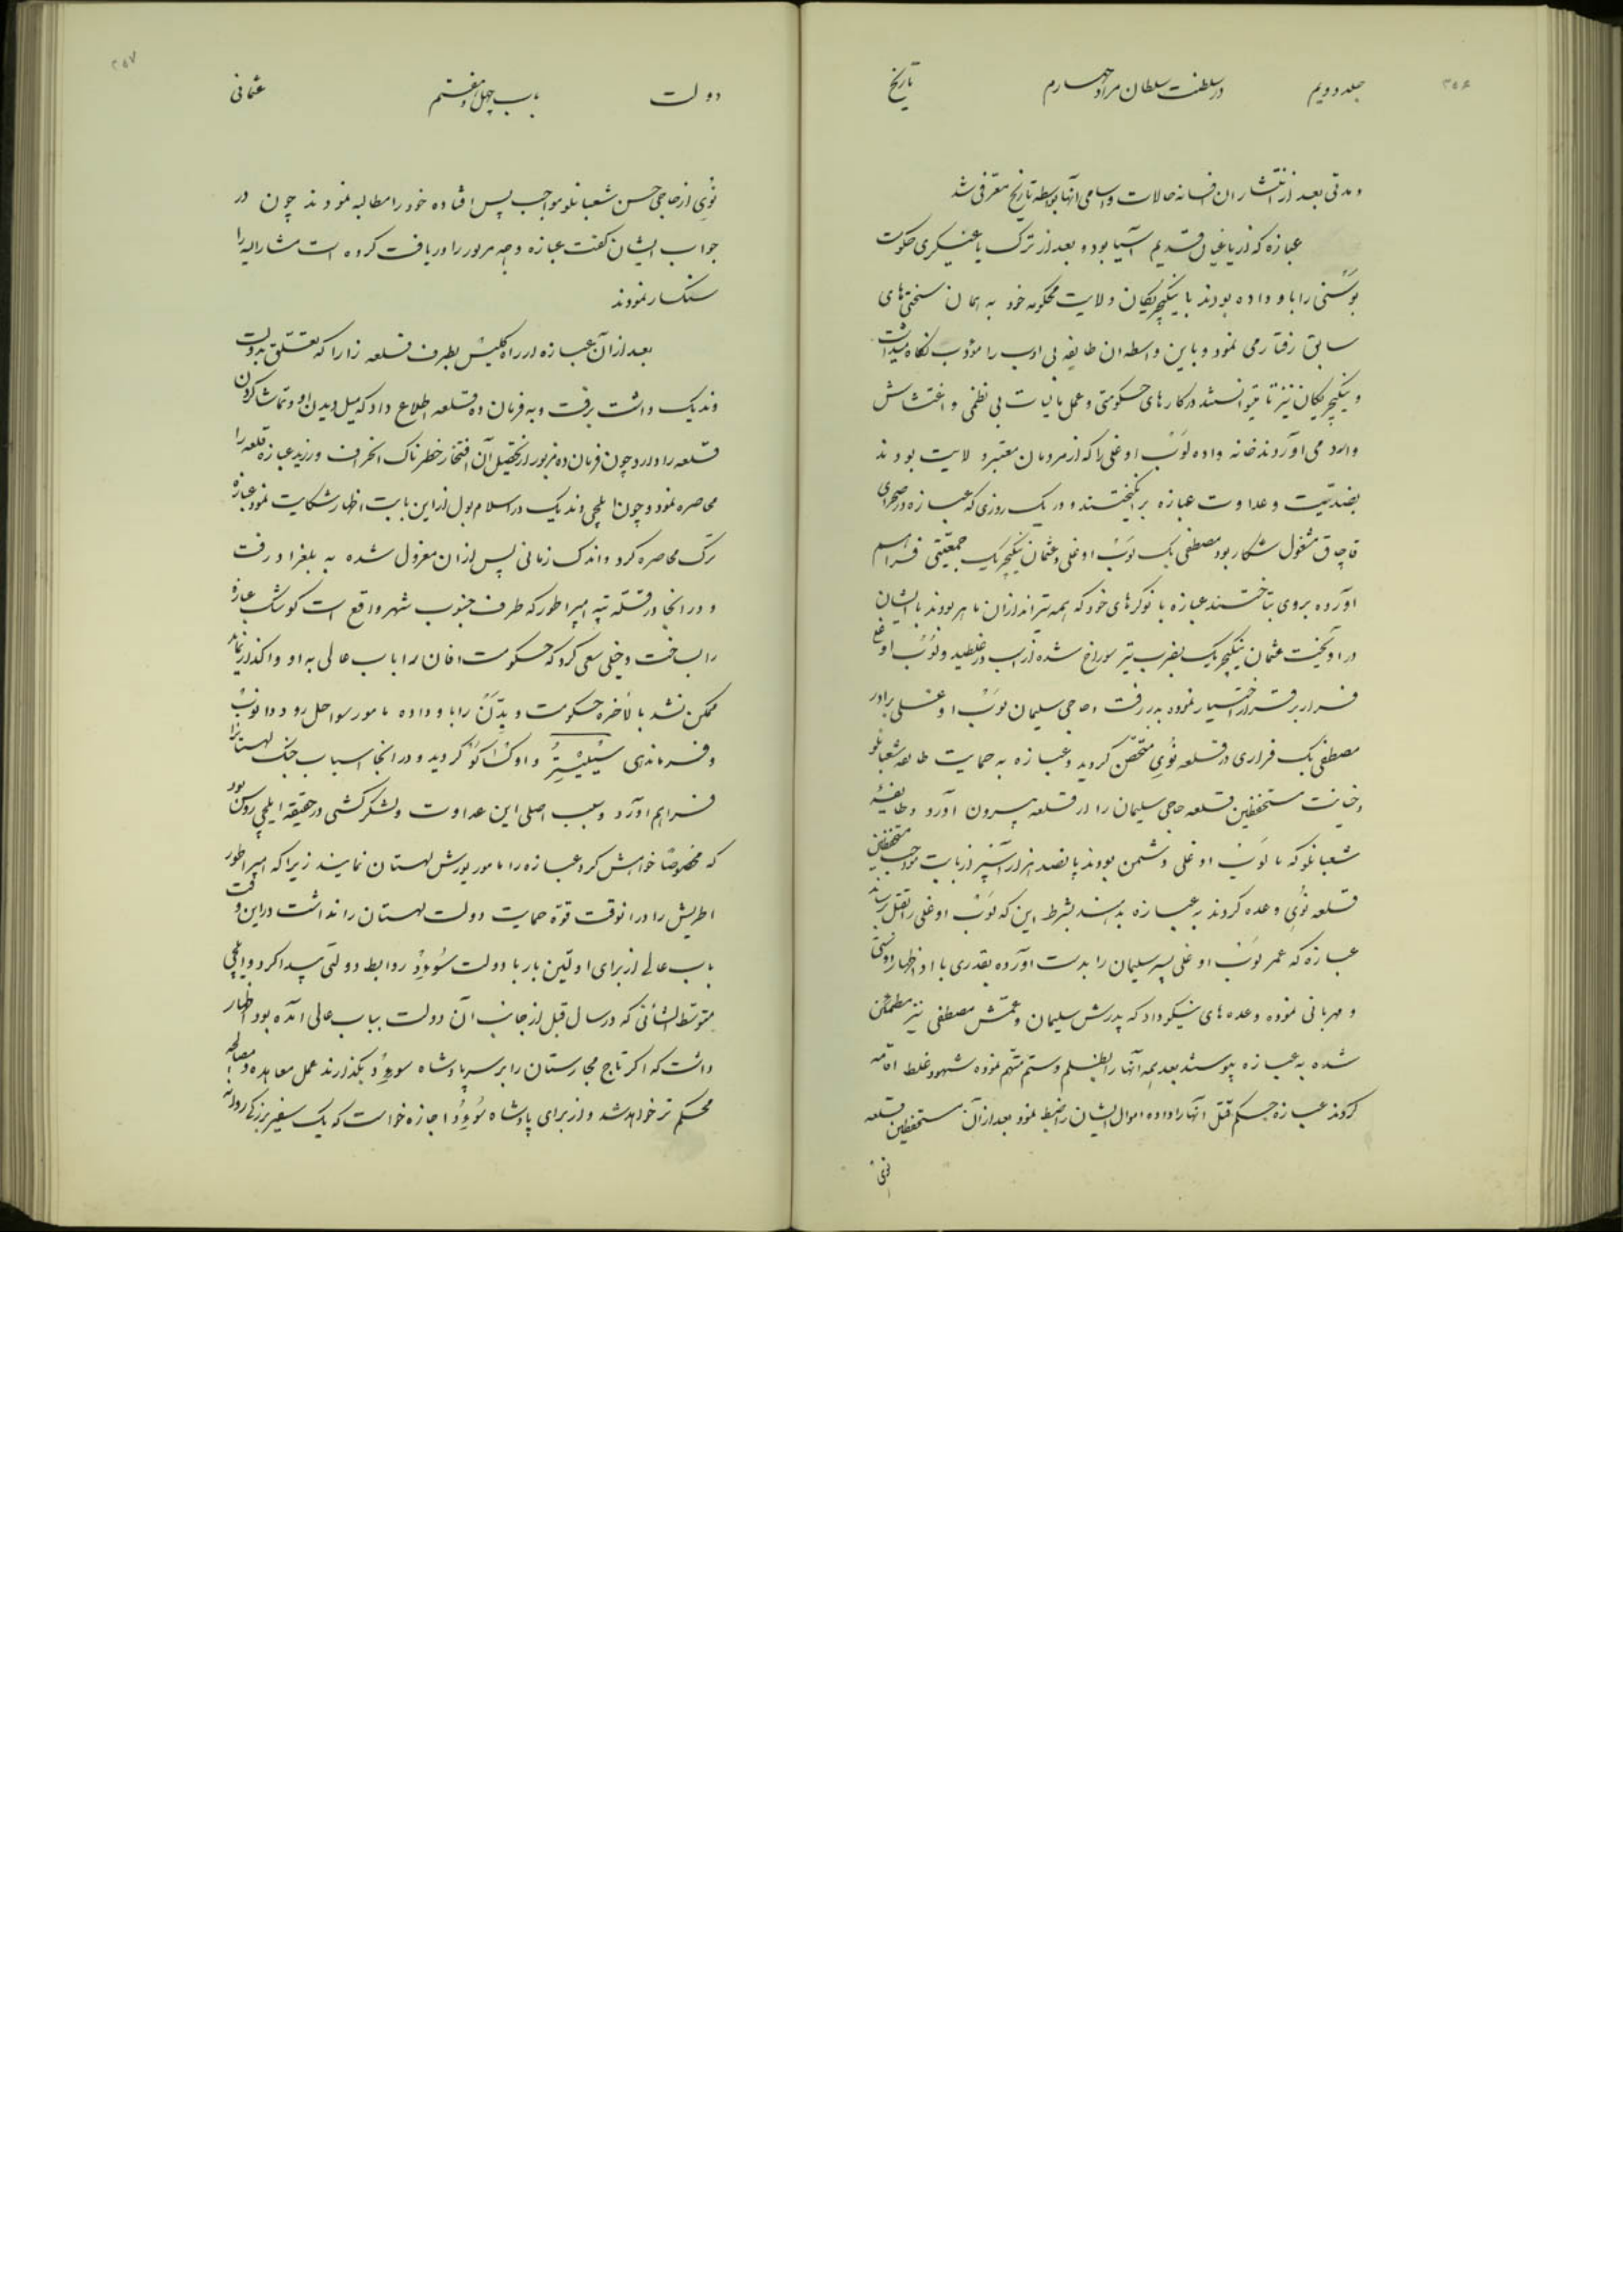 ۳۵۶
جلد دویم در سلطنت سلطان مراد چهارم تاریخ
و مدتی بعد از انتشار ان افسانه حالات و اسامی آنها بواسطه تاریخ معرفی شد
عبازه که از یاغیان قدیم آسیا بود و بعد از ترک یاغیگری حکومت
بوسنی را باو داده بودند با ینکیچریکان ولایت محکومه خود به همان سختی‌های
سابق رفتار می نمود و باین واسطه ان طایفه بی ادب را مؤدب نگاه میداشت
و ینکیچریکان نیز تا میتوانستند در کارهای حکومتی و عمل مالیات بی نظمی و اغتشاش
وارد می آوردند خانه واده لوَبْ اوغلی را که از مردمان معتبر ولایت بودند
بضدیت و عداوت عبازه برانگیختند و در یک روزی که عبازه در صحرای
قاچاق مشغول شکار بود مصطفی بک لوَبْ اوغلی و عثمان ینکیچریک جمعیتی فراهم
آورده بروی بتاختند عبازه با نوکرهای خود که همه تیراندازان ماهر بودند با ایشان
در آویخت عثمان ینکیچریک بضرب تیر سوراخ شده از اسب در غلطید و لوَبْ اوغلی
فرار بر قرار اختیار نموده بدر رفت حاجی سلیمان لوَبْ اوغلی برادر
مصطفی بک فراری در قلعه نُوِی متحصن کردید و عبازه به حمایت طایفه شعبانلو
و خیانت مستحفظین قلعه حاجی سلیمان را از قلعه بیرون آورد و طایفهٔ
شعبانلو که با لوَبْ اوغلی دشمن بودند پانصد هزار آسپر از بابت مواجب مستحفظین
قلعه نُوِی وعده کردند به عبازه بدهند بشرط این که لوَبْ اوغلی را بقتل برساند
عبازه که عمر لوَبْ اوغلی پسر سلیمان را بدست آورده بقدری با او اظهار دوستی
و مهربانی نموده وعده های نیکو داد که پدرش سلیمان و عمش مصطفی نیز مطمئن
شده به عبازه پیوستند بعد همه آنها را بظلم و ستم متهم نموده شهود غلط اقامه
کردند عبازه حکم قتل آنها را داده اموال ایشان را ضبط نمود بعد از آن مستحفظین قلعه
نُوِی
۳۵۷
دولت باب چهل و هفتم عثمانی
نُوِی از حاجی حسن شعبانلو مواجب پس افتاده خود را مطالبه نمودند چون در
جواب ایشان گفت عبازه وجه مزبور را دریافت کرده است مشارالیه را
سنگسار نمودند
بعد از آن عبازه از راه کلیس بطرف قلعه زارا که تعلق بدولت
وندیک داشت برفت و به فرمان ده قلعه اطلاع داد که میل دیدن او و تماشا کردن
قلعه را دارد و چون فرمان ده مزبور از تحصیل آن افتخار خطرناک انحراف ورزید عبازه قلعه را
محاصره نمود و چون ایلچی وندیک در اسلامبول از این بابت اظهار شکایت نمود عبازه
ترک محاصره کرد و اندک زمانی پس از ان معزول شده به بلغراد رفت
و در انجا در قله تپه امپراطور که طرف جنوب شهر واقع است کوشک عبازه
را بساخت و خیلی سعی کرد که حکومت افان را باب عالی به او واگذار نماید
ممکن نشد بالاخره حکومت ویدّنْ را باو داده مامور سواحل رود دانوبْ
و فرماندهی سیْلِیْسِترْ و اوکْشاکوْ کردید و در انجا اسباب جنک لهستان را
فراهم آورد و سبب اصلی این عداوت و لشکرکشی در حقیقة ایلچی روس بود
که مخصوصًا خواهش کرد عبازه را مامور یورش لهستان نمایند زیرا که امپراطور
اطریش را در انوقت قوة حمایت دولت لهستان را نداشت در این وقت
باب عالی از برای اولین بار با دولت سُوِودْ روابط دولتی پیدا کرد و ایلچی
متوسط الشأنی که در سال قبل از جانب آن دولت بباب عالی آمده بود اظهار
داشت که اکر تاج مجارستان را بر سر پادشاه سوِودْ بگذارند عمل معاهده و مصالحه
محکم تر خواهد شد و از برای پادشاه سُوِودْ اجازه خواست که یک سفیر بزرکی روانه